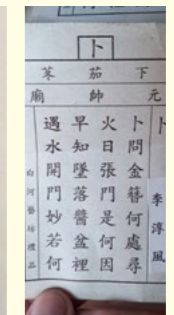 卜
下茄苳
元帥廟
卜
李淳風
卜問金簪何處尋
火日張門是何因
早知墜落醬盆裡
遇水開門妙若何
白河藝坊禮品